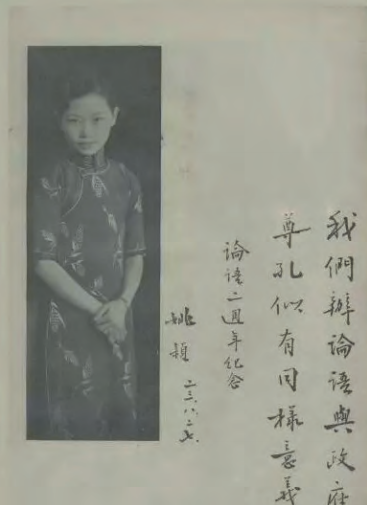 我們辦論語與政府
尊孔似有同樣意義
論語二週年紀念
姚穎 二三、八、二七、